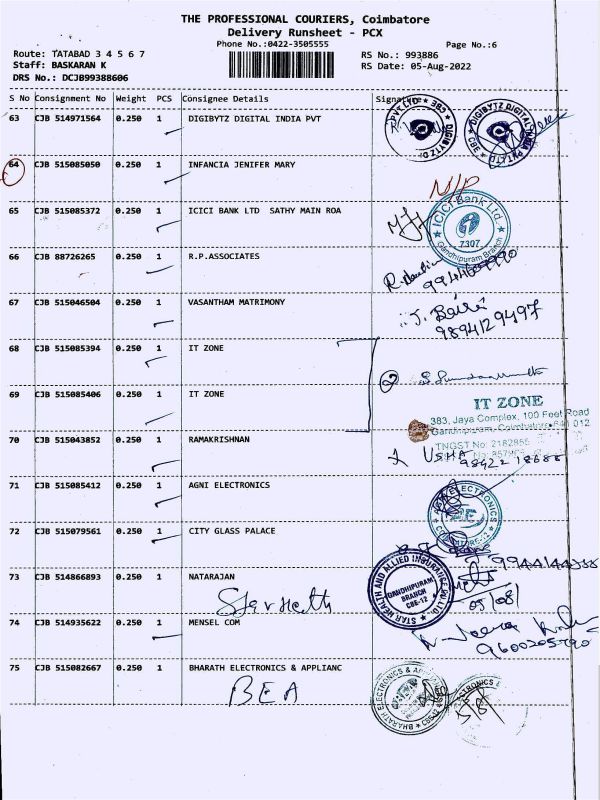 THE PROFESSIONAL COURIERS, Coimbatore
Delivery Runsheet - PCX
Phone No.:0422-3505555
Page No.:6
Route: TATABAD 3 4 5 6 7
Staff: BASKARAN K
DRS No.: DCJB99388606
RS No.: 993886
RS Date: 05-Aug-2022
S No Consignment No Weight PCS Consignee Details Signature
63 CJB 514971564 0.250 1 DIGIBYTZ DIGITAL INDIA PVT
64 CJB 515085050 0.250 1 INFANCIA JENIFER MARY
N/P
65 CJB 515085372 0.250 1 ICICI BANK LTD SATHY MAIN ROA
ICICI Bank Ltd.
7307
Gandhipuram Branch
66 CJB 88726265 0.250 1 R.P.ASSOCIATES
67 CJB 515046504 0.250 1 VASANTHAM MATRIMONY
9894129497
68 CJB 515085394 0.250 1 IT ZONE
2
69 CJB 515085406 0.250 1 IT ZONE
IT ZONE
383, Jaya Complex, 100 Feet Road
Gandhipuram, Coimbatore-641 012
TNGST No: 2182855
70 CJB 515043852 0.250 1 RAMAKRISHNAN
USHA
71 CJB 515085412 0.250 1 AGNI ELECTRONICS
72 CJB 515079561 0.250 1 CITY GLASS PALACE
73 CJB 514866893 0.250 1 NATARAJAN
STAR HEALTH AND ALLIED INSURANCE
GANDHIPURAM
BRANCH
CBE-12
05/08/
Star health
74 CJB 514935622 0.250 1 MENSEL COM
75 CJB 515082667 0.250 1 BHARATH ELECTRONICS & APPLIANC
BEA
BHARATH ELECTRONICS &